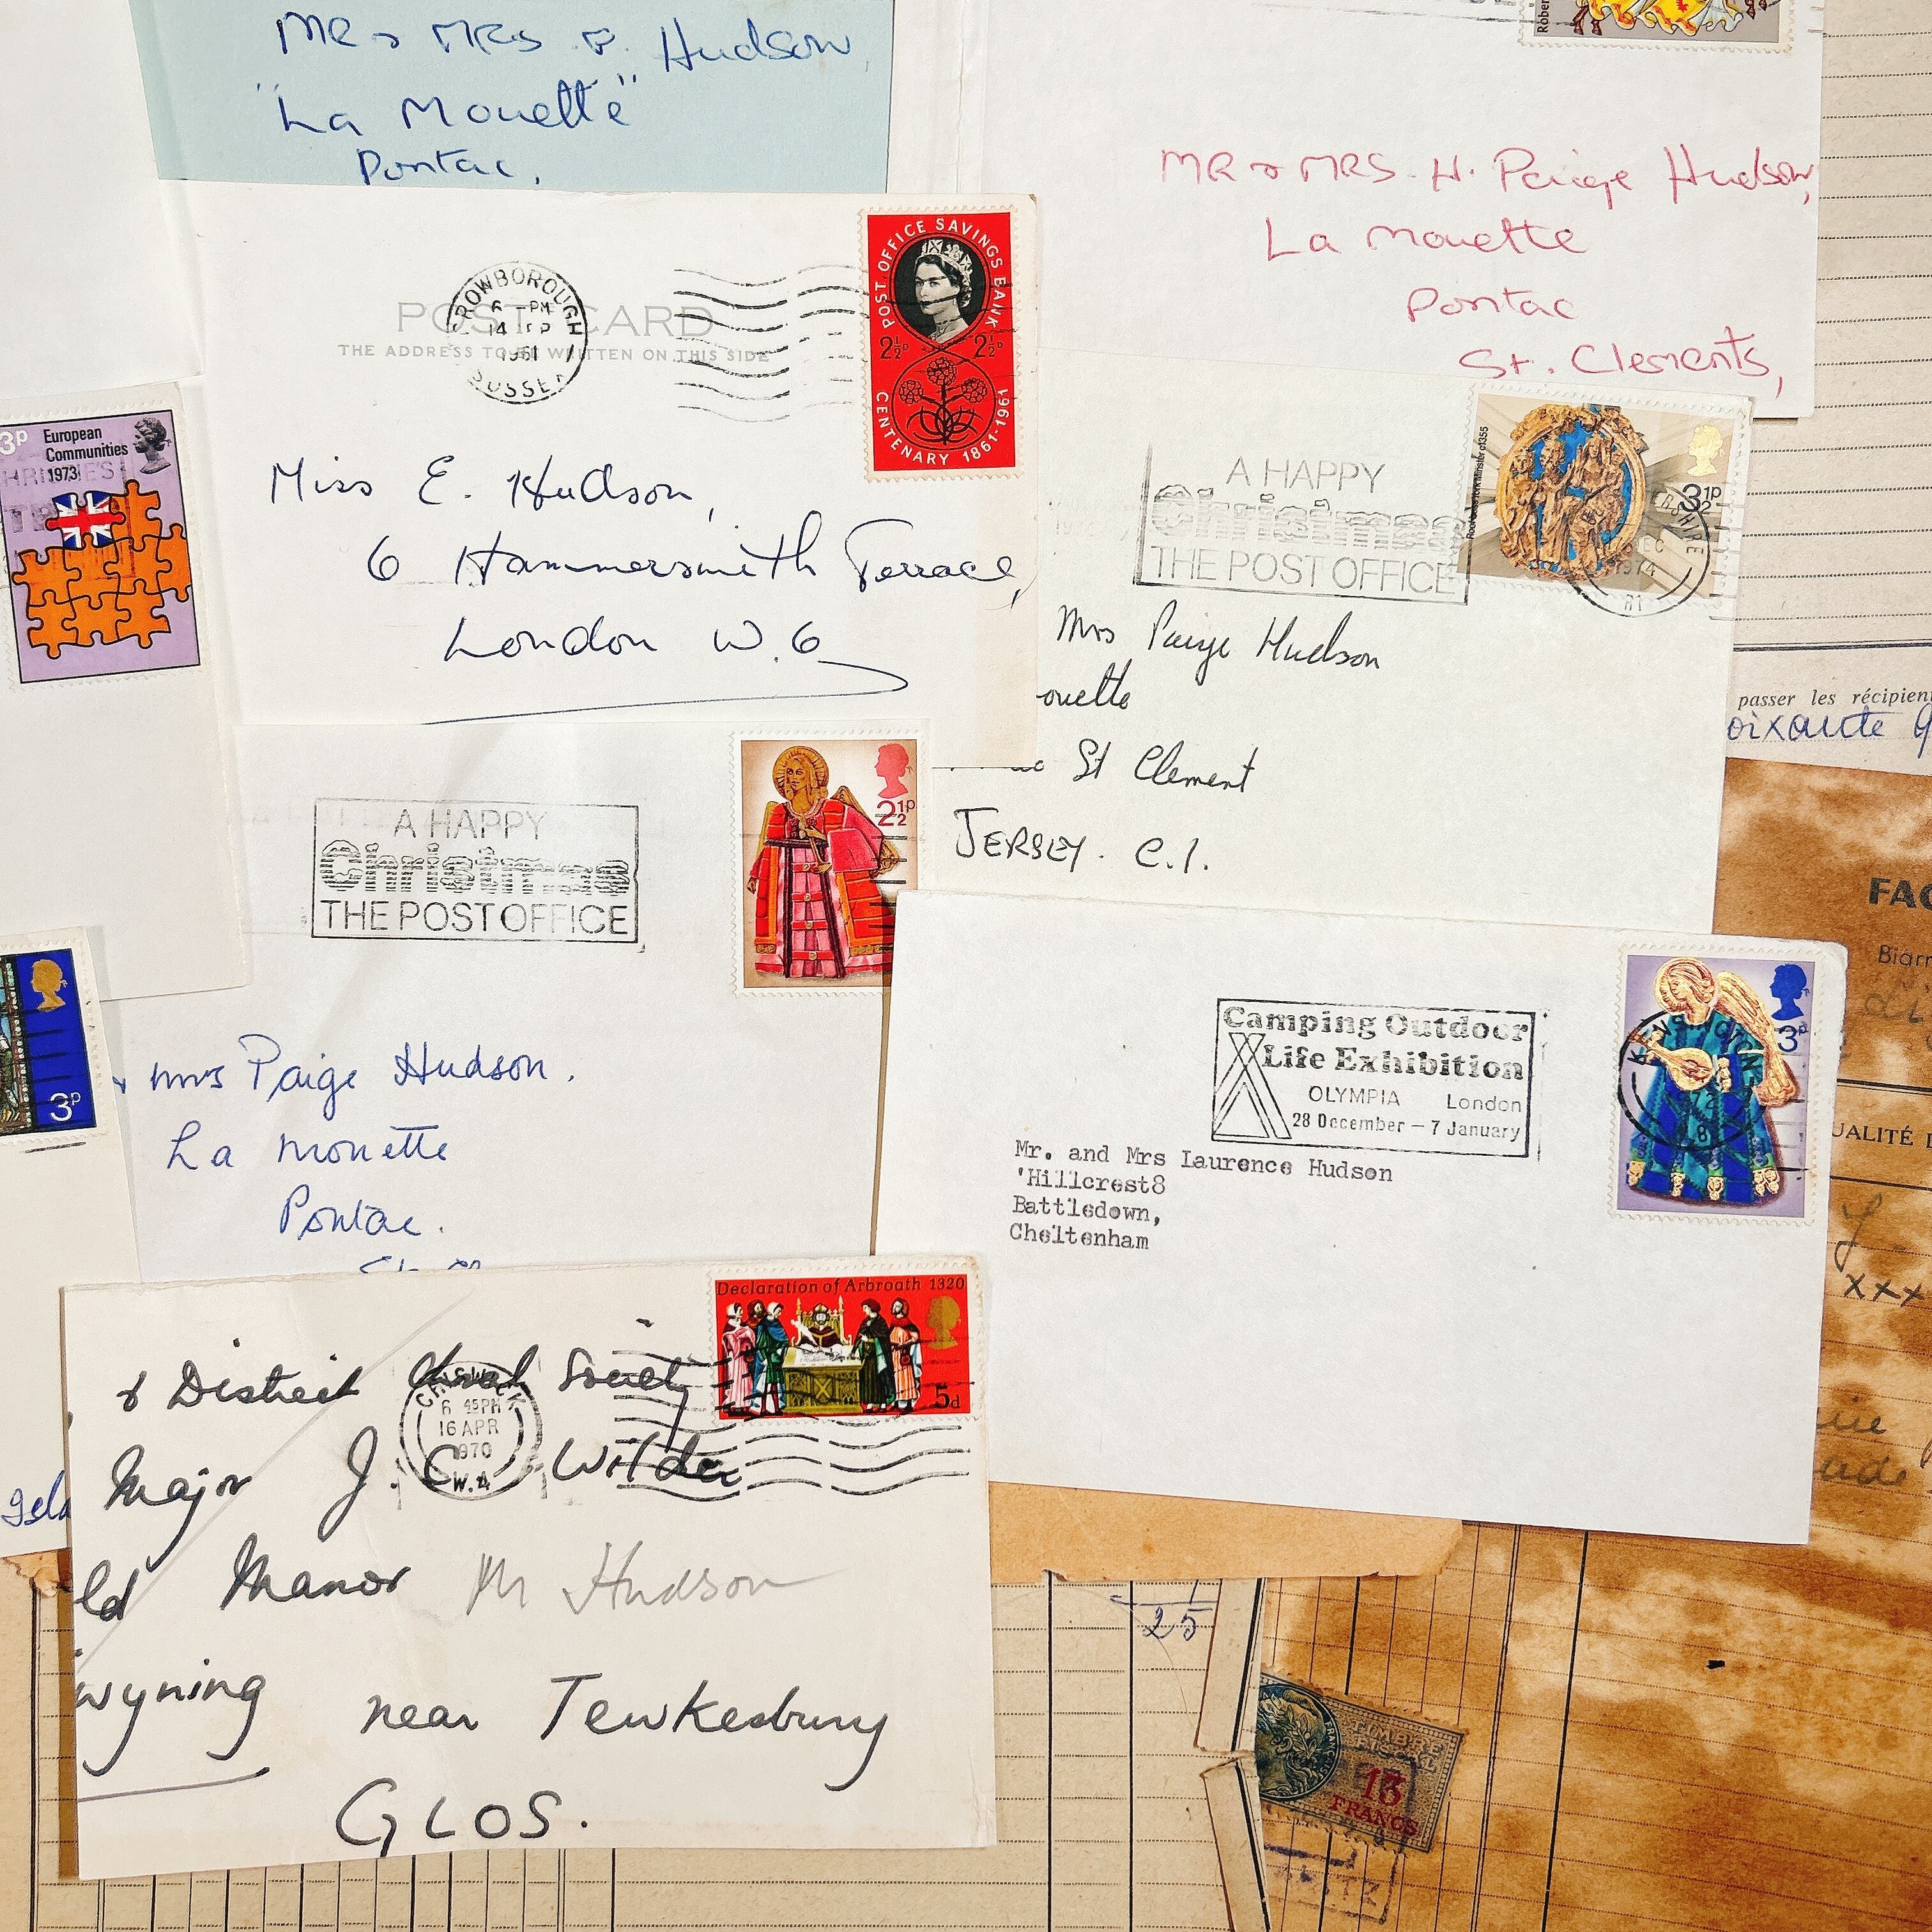 MR & MRS P. Hudson,
"La Mouette"
Pontac,
MR & MRS. H. Paige Hudson,
La Mouette
Pontac
St. Clements,
POST OFFICE SAVINGS BANK
2½D 2½D
CENTENARY 1861-1961
CROWBOROUGH
6 - PM
14 SP
1961
SUSSEX
POST CARD
THE ADDRESS TO BE WRITTEN ON THIS SIDE
Miss E. Hudson,
6 Hammersmith Terrace,
London W.6
3p
European
Communities
1973
A HAPPY
Christmas
THE POST OFFICE
3½p
1974
Mrs Paige Hudson
ouette
St Clement
JERSEY. C.I.
passer les récipien
oixante
A HAPPY
Christmas
THE POST OFFICE
2½p
mrs Paige Hudson.
La Mouette
Pontac.
3p
Camping Outdoor
Life Exhibition
OLYMPIA London
28 December – 7 January
KENSINGTON
3p
Mr. and Mrs Laurence Hudson
'Hillcrest8
Battledown,
Cheltenham
FAC
Biarr
UALITÉ
xxx
Declaration of Arbroath 1320
5d
& District Choral Society
CHISWICK
6 45PM
16 APR
1970
W.4
Major J. C. Wilder
ld Manor M Hudson
wyning near Tewkesbury
GLOS.
25
TIMBRE
FISCAL
13
FRANCS